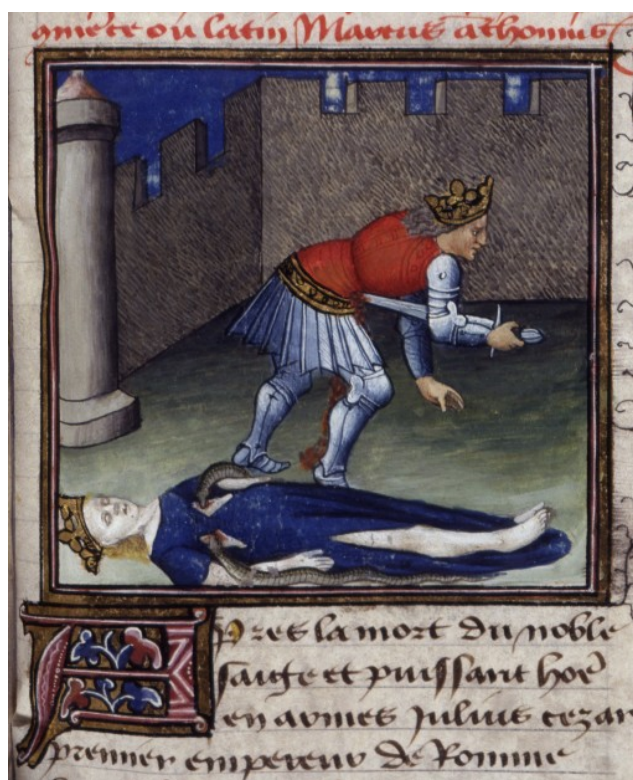 en latin Marcus Athonius
Apres la mort du noble
saige et puissant hoē
en armes Julius cezar
premier empereur de Romme